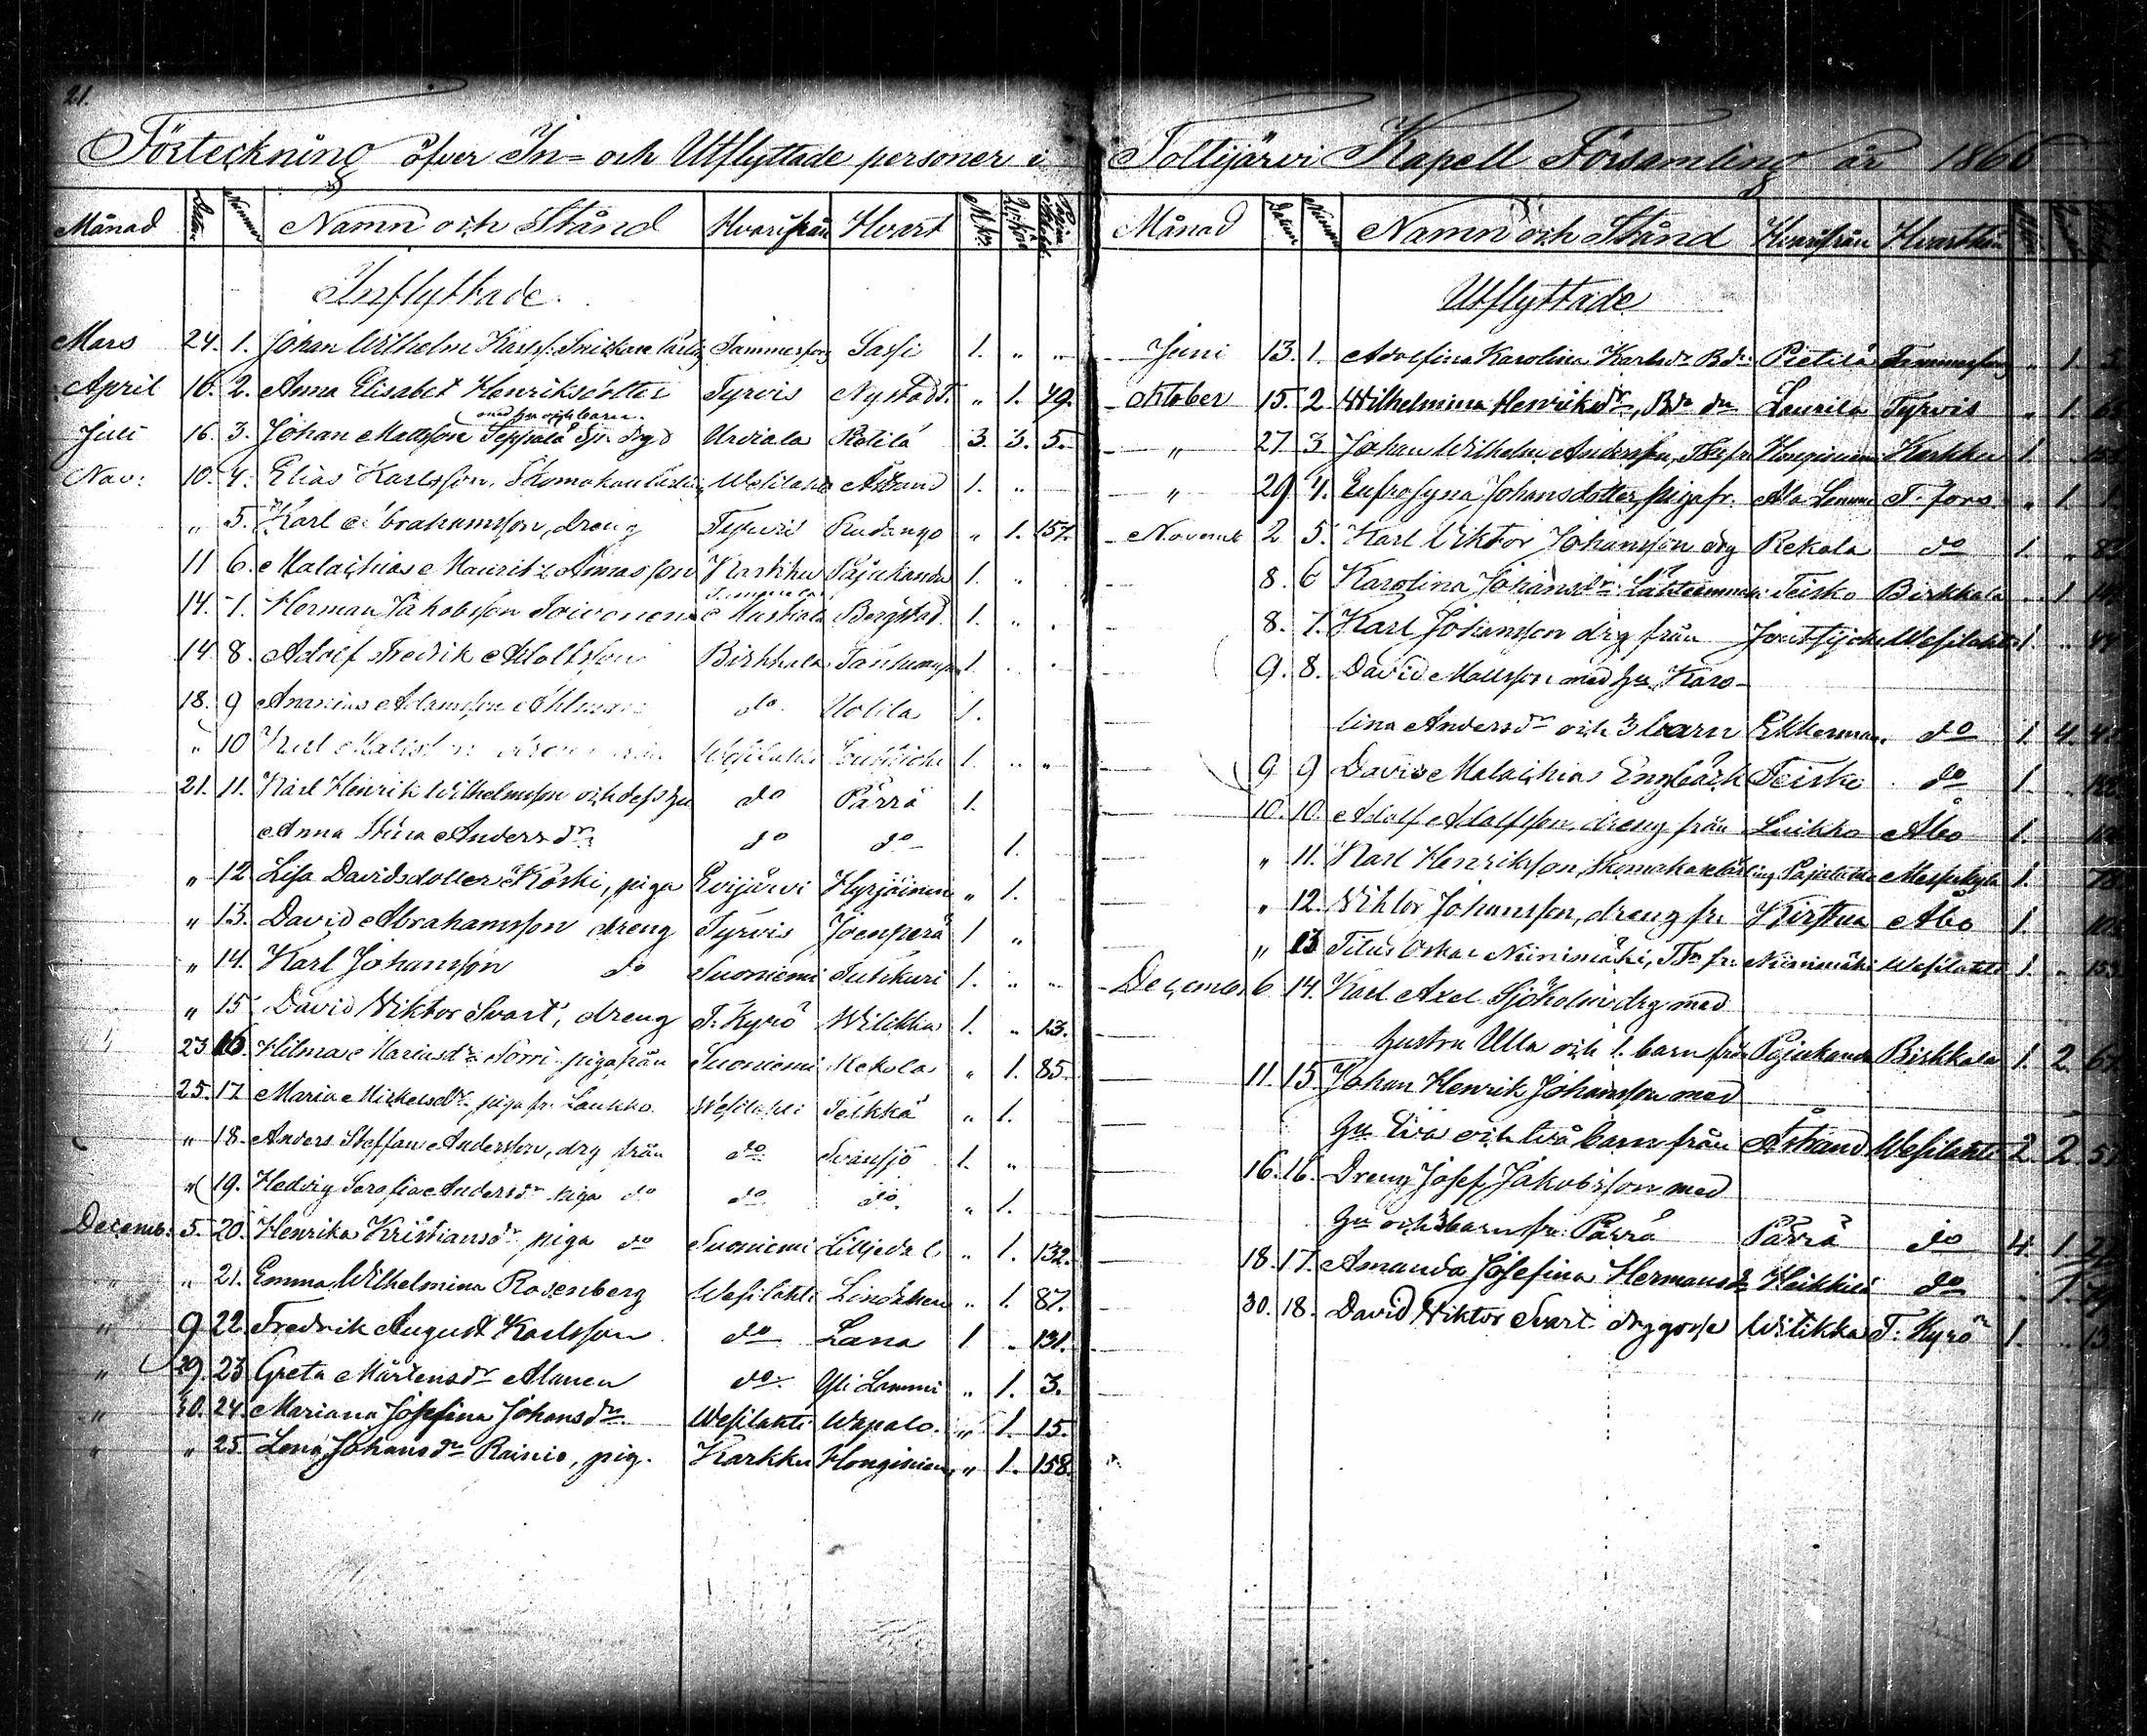 21.
Förteckning öfver In- och Utflyttade personer i Tottijärvi Kapell Församling år 1866
Månad Datum Nummer Namn och Stånd Hvarifrån Hvart M.kön Q.kön
Inflyttade.
Mars 24. 1. Johan Wilhelm Karlss. Snickare Lärling Tammerfors Sassi 1. " "
April 16. 2. Anna Elisabet Henriksdotter Tyrvis Nystadt. " 1. 49.
med hu och barn.
Juli 16. 3. Johan Mattsson Seppälä Urdiala Kotila 3. 3. 5.
Nov: 10. 4. Elias Karlsson, Skomakare lärling Wesilahti Åstrand 1. "
" 5. Karl Abrahamsson, dreng Tyrvis " 1. 157.
11 6. Malachias Mauritz Karkku Pajukanda 1. "
14. 7. Herman Jakobsson Toivonen Bergstad. 1. " .
14 8. Adolf Fredrik Adolfsson Birkkala 1. . .
18. 9 Adamsson Ahlman do Uotila 1.
" 10 Karl Wesilahti 1. " "
21. 11. Karl Henrik Wilhelmsson och dess hu do Pärrä 1.
Anna Stina Andersdr do do 1.
" 12 Lisa Davidsdotter Koski, piga Evijärvi Hyrjäinen " 1.
" 13. David Abrahamsson dreng Tyrvis Joenperä 1 "
" 14. Karl Johansson do Suoniemi Tuhkuri 1. " "
" 15 David Viktor Svart, dreng T. Kyrö Witikka 1. " 13.
23 16. Hilma Mariasdr Norri piga från Suoniemi Rekola " 1. 85.
25. 17 Maria Mickelsdr piga fr. Laukko Wesilahti Teikkä " 1.
" 18. Anders Steffan Andersson, drg från do Svansjö 1. "
" 19. Hedvig Serafia Andersdr piga do do do " 1.
Decemb. 5. 20. Henrika Kristiansdr piga do Suoniemi Liljedal " 1. 132.
" " 21. Emma Wilhelmina Rosenberg Wesilahti " 1. 87.
" 9 22 Fredrik August Karlsson do Lana 1 " 131.
" 29. 23 Greta Mårtensdr Alanen do Yli Lammi " 1. 3.
" 30. 24. Mariana Josefina Johansdr Wesilahti Wapalo. " 1. 15.
" " 25. Lena Johansdr Rainio, pig. Karkku Honginiemi " 1. 158.
Månad Datum Nummer Namn och Stånd Hvarifrån Hvarthän
Utflyttade
Juni 13. 1. Adolfina Karolina Karlsdr Bdr Pietilä Tammerfors " 1.
Oktober 15. 2 Wilhelmina Henriksdr, Bdr dr Laurila Tyrvis " 1.
" 27. 3 Johan Wilhelm Andersson, Honginiemi Karkku 1.
" 29 4. Eufrosyna Johansdotter, piga fr. Ala Lammi T. fors " 1.
Novemb 2 5. Karl Viktor Johansson drg Rekola do 1. "
8. 6 Karolina Johansdr Teisko Birkkala " 1
8. 7. Karl Johansson drg från Joutsijoki Wesilahti 1. "
9. 8. David Mattsson med hu Karo-
lina Andersdr och 3 barn Ekkerman do 1. 4.
9 9 David Malachias Engbäck Teisko do 1.
10. 10. Adolf Adolfsson, dreng från Luikko Åbo 1.
" 11. Karl Henriksson, Skomakarelärling Messukylä 1. 78.
" 12. Viktor Johansson, dreng fr. Kirstua Åbo 1
" 13 Titus Oskar Niinimäki, fr. Niinimäki Wesilahti 1. "
December 6 14. Karl Axel Sjöholm drg med
hustru Ulla och 1. barn från Pajukanda Birkkala 1. 2.
11. 15. Johan Henrik Johansson med
hu Eva och två barn från Åstrand Wesilahti 2. 2.
16. 16. Dreng Josef Jakobsson med
hu och 3 barn fr. Pärrä Pärrä do 4. 1
18. 17. Amanda Josefina Hermansdr Heikkilä do " 1.
30. 18. David Viktor Svart drg gosse Witikka T. Kyrö 1. "